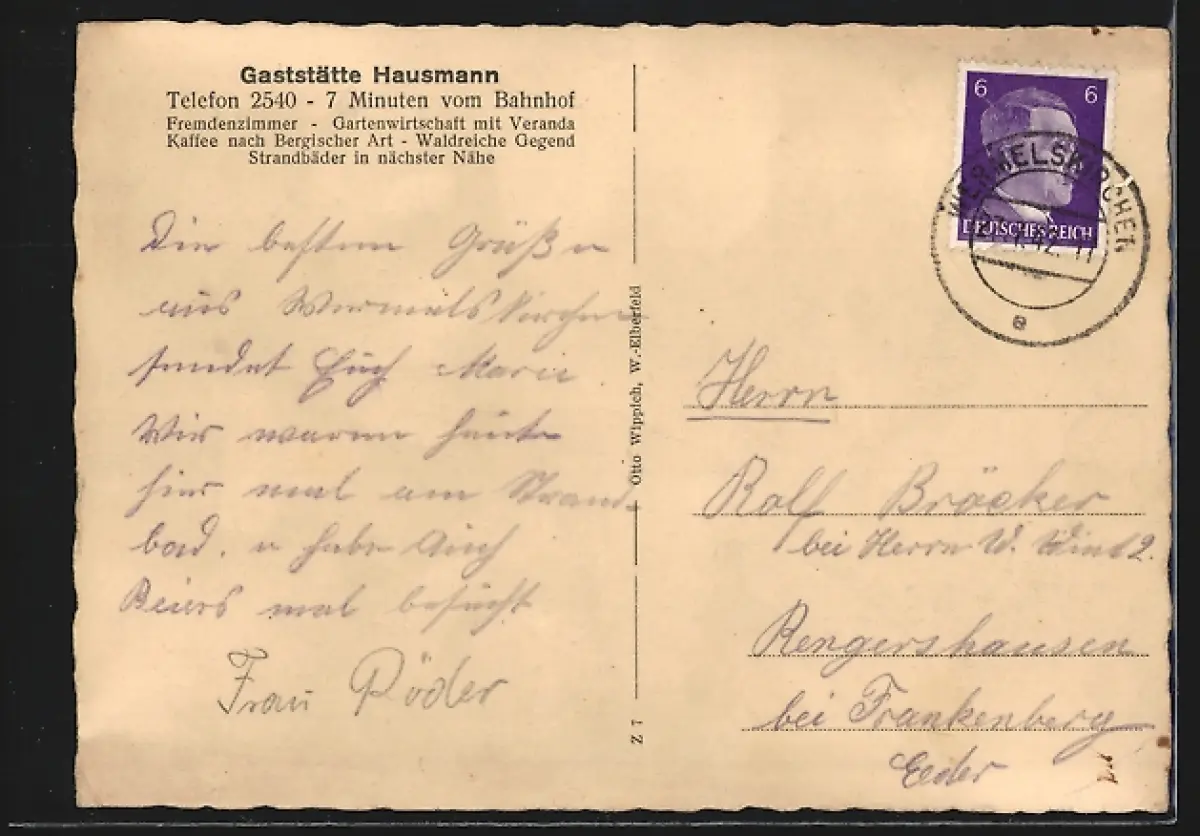 Gaststätte Hausmann
Telefon 2540 - 7 Minuten vom Bahnhof
Fremdenzimmer - Gartenwirtschaft mit Veranda
Kaffee nach Bergischer Art - Waldreiche Gegend
Strandbäder in nächster Nähe
Die besten Grüße
aus Wermelskirchen
sendet Euch Marie.
Wir waren heute
hier mal am Strand-
bad. u habe Auch
Beiers mal besucht
Frau Röder
Otto Wippich, W.-Elberfeld
Z 7
6 6
DEUTSCHES REICH
WERMELSKIRCHEN
42. 11
e
Herrn
Rolf Bröcker
bei Herrn W.
Rengershausen
bei Frankenberg
Eeder